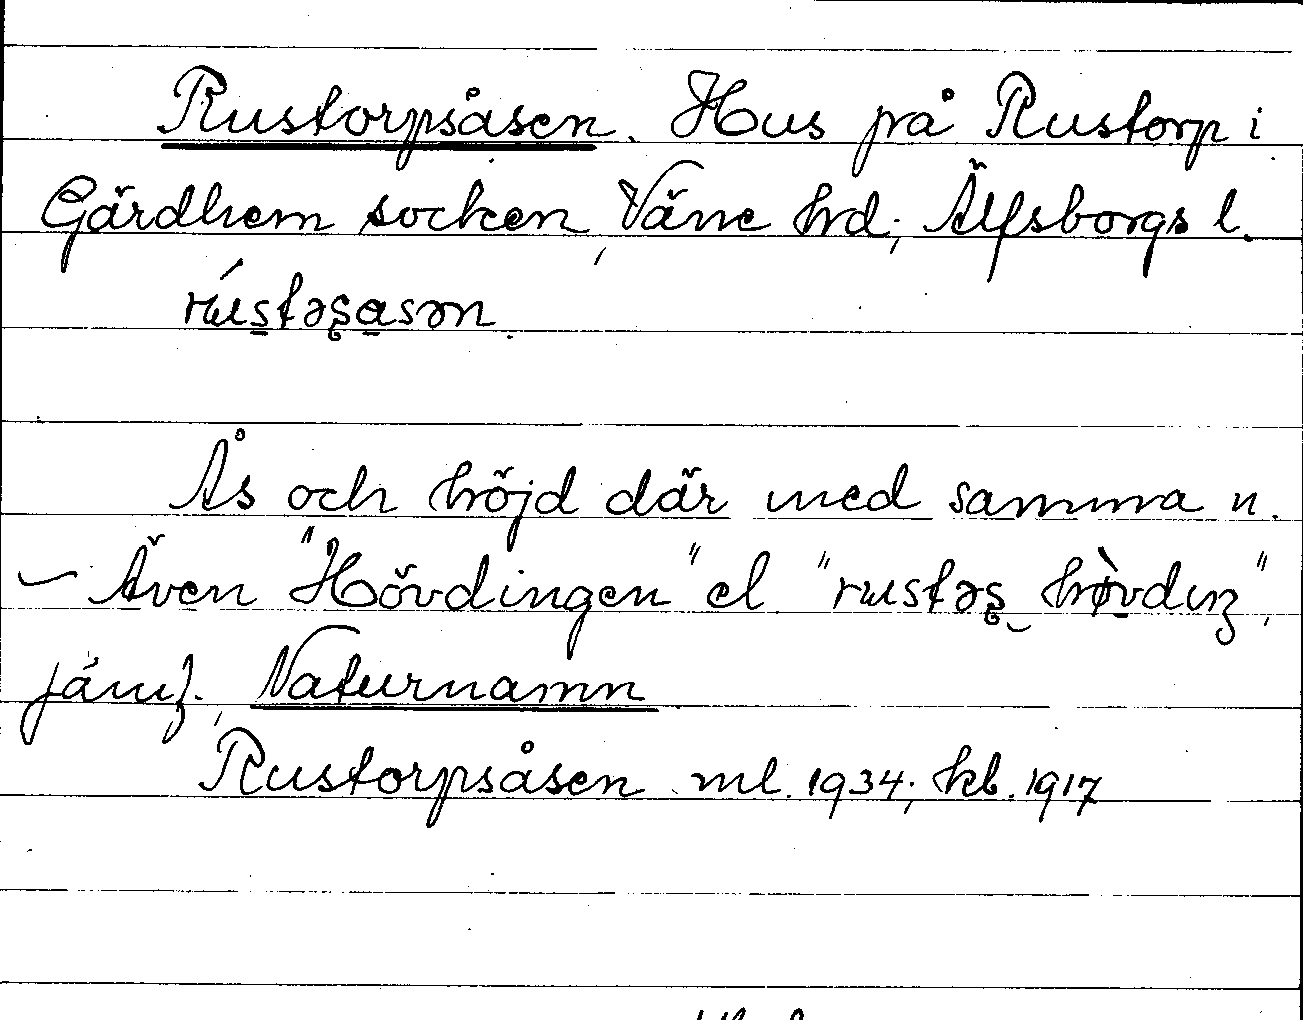 Rustorpsåsen. Hus på Rustorp i
Gärdhem socken, Väne hrd, Älfsborgs l.
rústəʂasən.
Ås och höjd där med samma n.
– Även "Hövdingen" el. "rustəʂ hø̀vdıŋ",
jämf. Naturnamn
Rustorpsåsen ml. 1934; kb. 1917